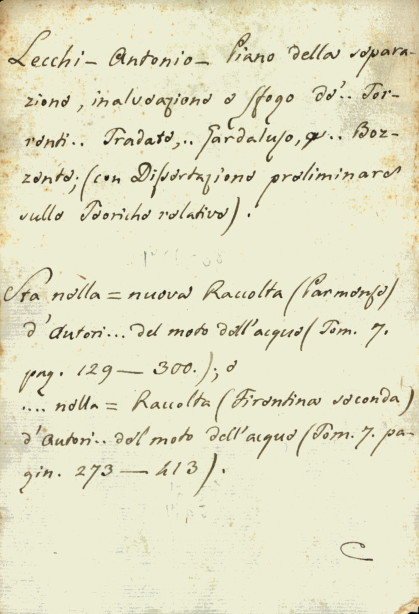 Lecchi - Antonio - Piano della separa-
zione, inalveazione e sfogo de'.. Tor-
renti.. Tradate,.. Gardaluso, e.. Boz-
zente; (con Dissertazione preliminare
sulle Teoriche relative).
Sta nella = nuova Raccolta (Parmense)
d'Autori... del moto dell'acque (Tom. 7.
pag. 129 — 300.); e
.... nella = Raccolta (Fiorentina seconda)
d'Autori.. del moto dell'acque (Tom. 7. pa-
gin. 273 — 413).
C